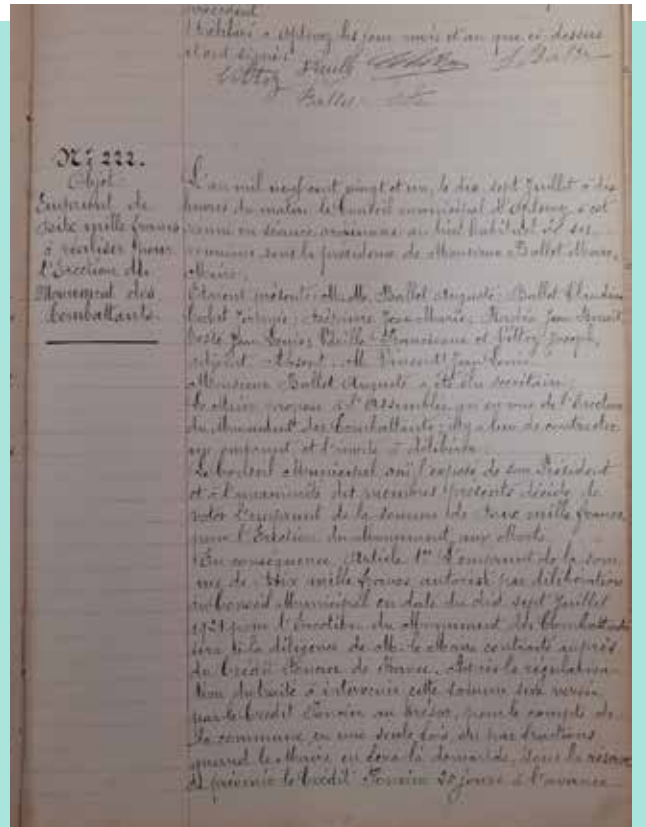 précédent.
les jour, mois et an que ci-dessus
et ont signé.
Ballet
N° 222.
Objet
Emprunt de
mille francs
à réaliser pour
l'Erection du
Monument des
Combattants.
L'an mil neuf cent vingt et un, le dix sept Juillet à dix
heures du matin, le Conseil municipal d' s'est
réuni en séance au lieu habituel de ses
réunions sous la présidence de Monsieur Ballet
Maire.
Etaient présents: M.M. Ballet Auguste, Ballet Claudius
Jean Marie, Jean Benoit
Jean Louis, et Vittoz Joseph,
adjoint. Absent: M. Vincent Jean Louis.
Monsieur Ballet Auguste a été élu secrétaire.
Le Maire propose à l'Assemblée qu'en vue de l'Erection
du Monument des Combattants il y a lieu de contracter
un emprunt et l'invite à délibérer.
Le Conseil Municipal ouï l'exposé de son Président
et à l'unanimité des membres présents décide de
voter l'emprunt de la somme de mille francs
pour l'Erection du Monument aux Morts.
En conséquence, Article 1er L'emprunt de la som
me de mille francs autorisé par délibération
du Conseil Municipal en date du dix sept Juillet
1921 pour l'Erection du Monument des Combattants
sera à la diligence de M. le Maire contracté auprès
du Crédit Foncier de France. Après la régularisa
tion du traité à intervenir cette somme sera versée
par le Crédit Foncier au trésor, pour le compte de
la commune en une seule fois, ou par fractions
quand le Maire en fera la demande, sous la réserve
de prévenir le Crédit Foncier 20 jours à l'avance